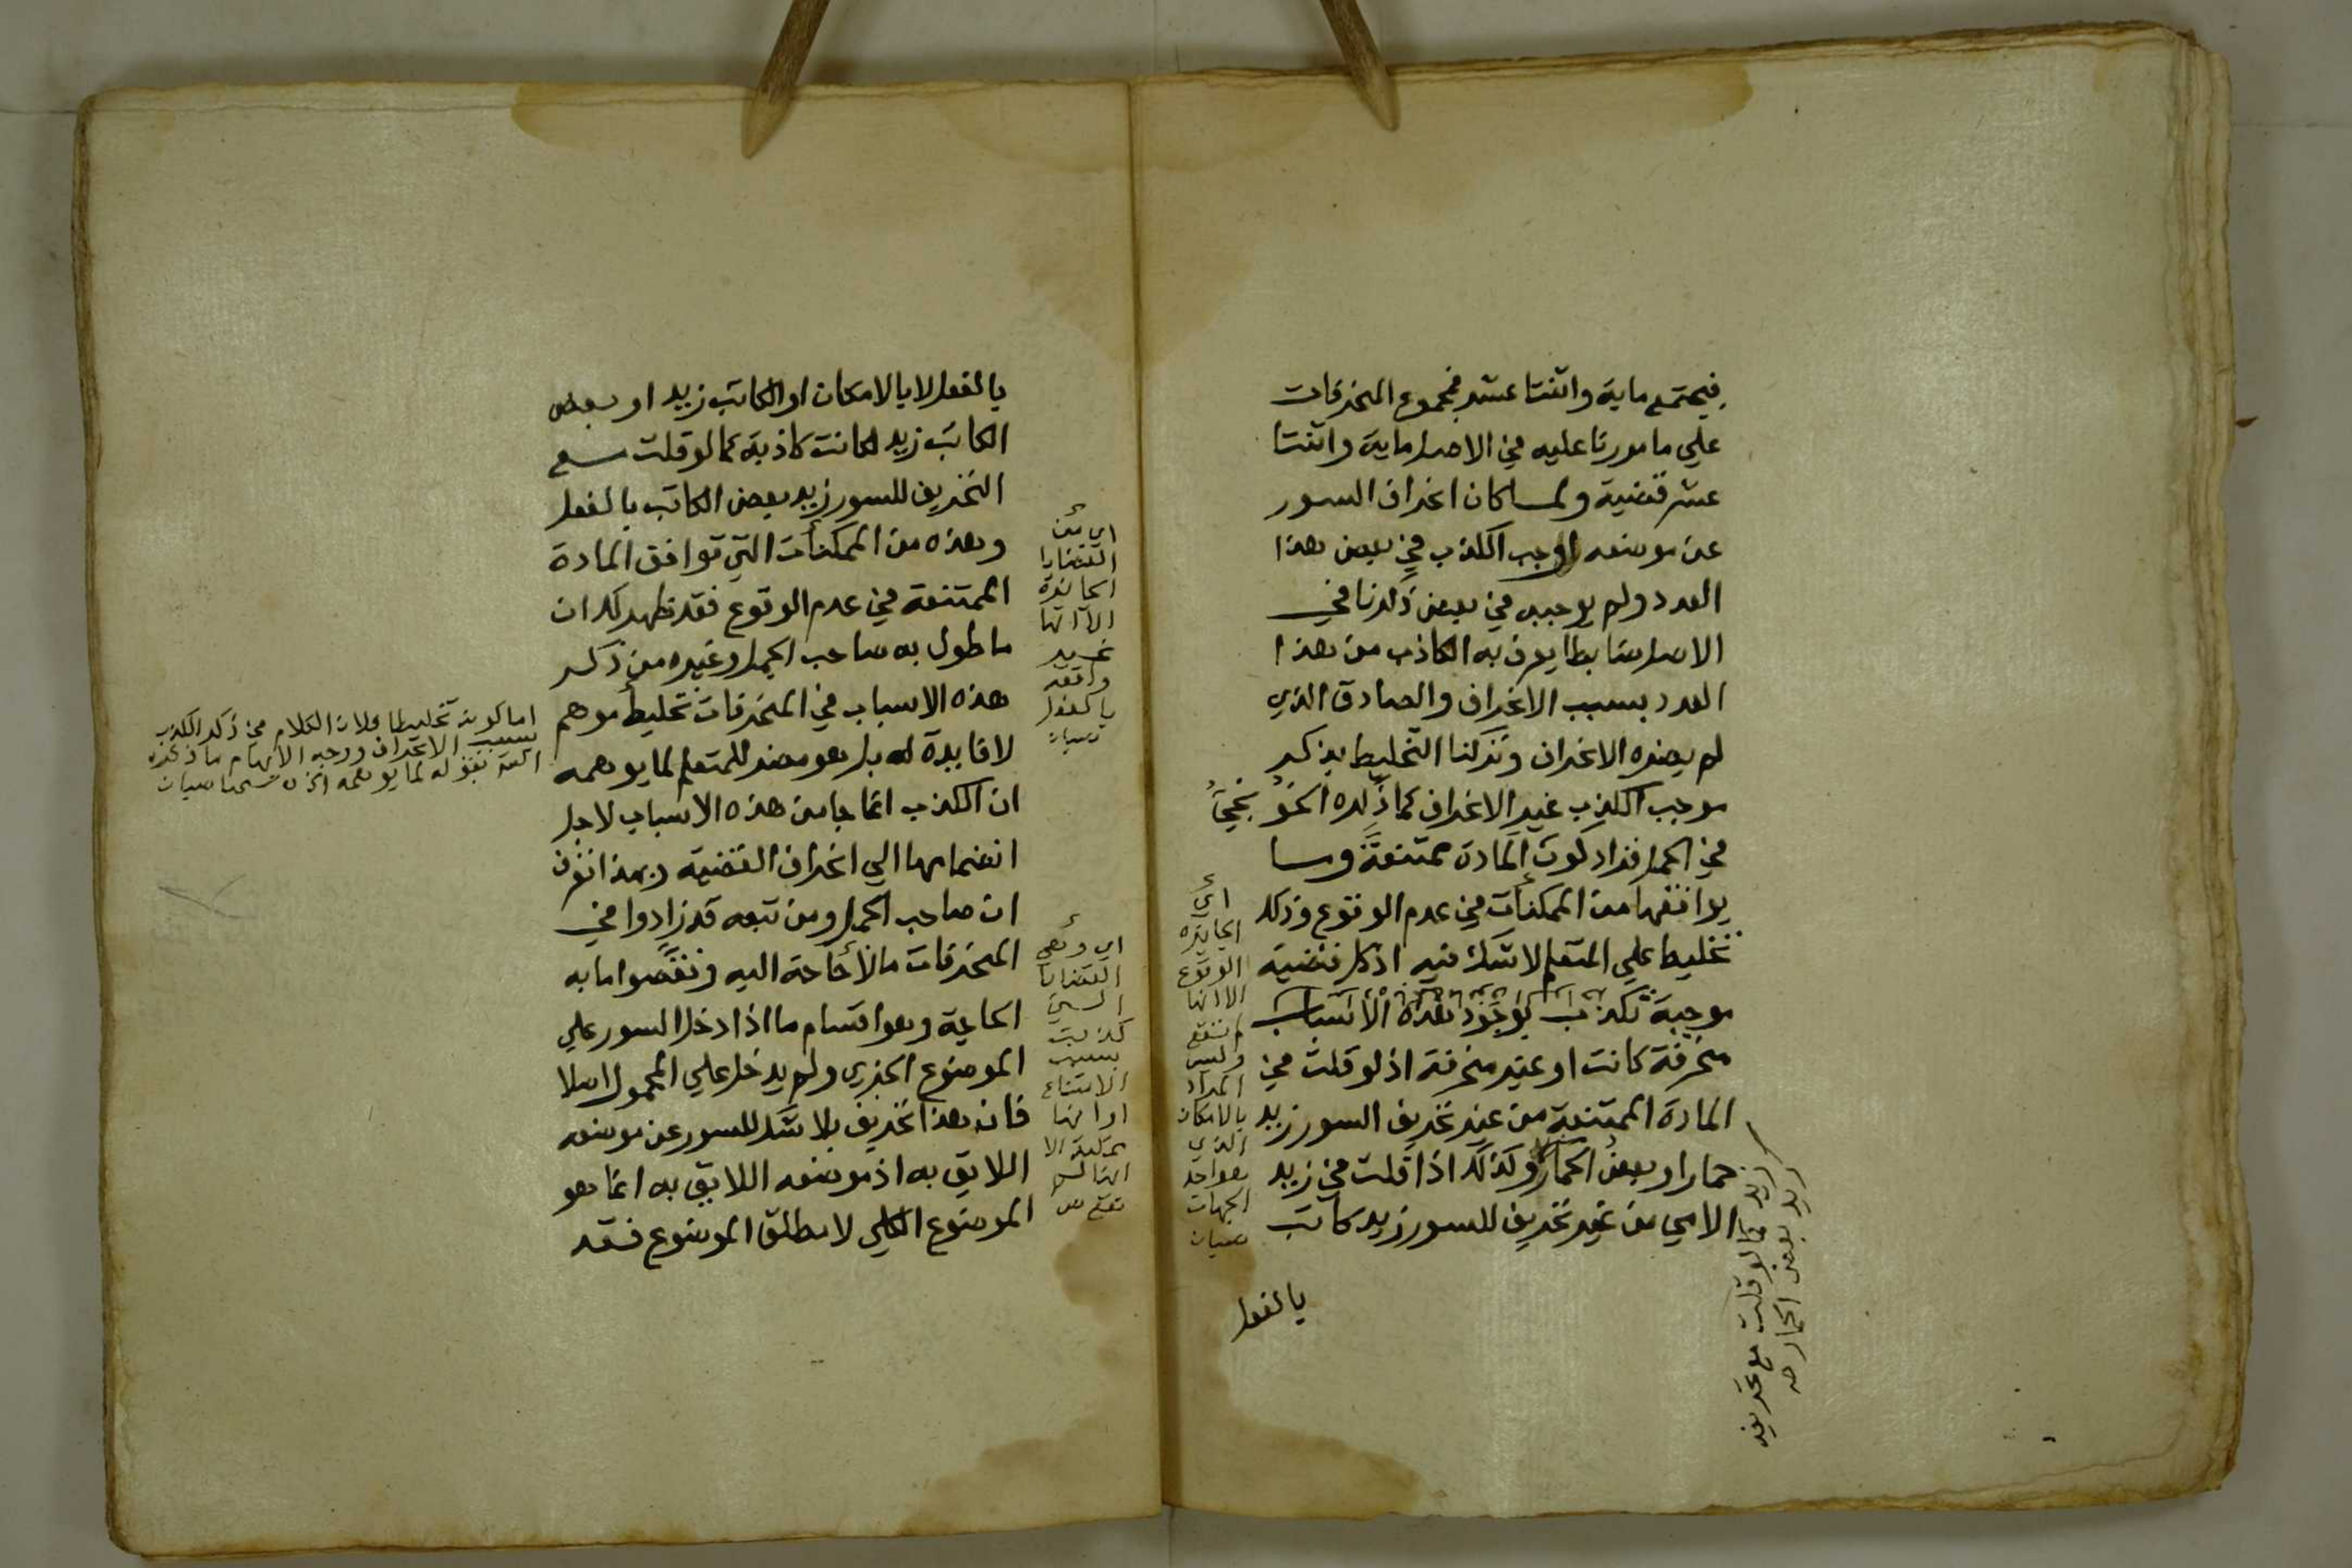 فيجتمع ماية واثنتا عشر فمجموع المنحرفات
علي ما مورنا عليه في الاصل ماية واثنتا
عشر قضية ولما كان انحراف السور
عن موضعه اوجب الكذب في بعض هذا
العدد ولم يوجبه في بعض ذكرنا في
الاصل ضابطا يعرف به الكاذب من هذا
العدد بسبب الانحراف والصادق الذي
لم يضره الانحراف وتركنا التخليط بذكر
موجب الكذب غير الانحراف كما ذكره الخونجي
في الجمل فزاد كون المادة ممتنعة وما
يوافقها من الممكنات في عدم الوقوع وذلك
تخليط علي المتعلم لا شك فيه اذ كل قضية
موجبة تكذب بوجود هذه الاسباب
منحرفة كانت او غير منحرفة اذ لو قلت في
المادة الممتنعة من غير تحريف السور زيد
حمار او بعض الحمار وكذلك اذا قلت في زيد
الامي من غير تحريف للسور زيد كاتب
بالفعل
اي
الجايزه
الوقوع
الا انها
لم تقع
وليس
المراد
بالامكان
الذي
هو احد
الجهات
صبان
زيد كما لو قلت مع تحريفه
زيد بعض الحمار صه
بالفعل لا بالامكان او الكاتب زيد او بعض
الكاتب زيد لكانت كاذبة كما لو قلت مع
التحريف للسور زيد بعض الكاتب بالفعل
وهذه من الممكنات التي توافق المادة
الممتنعة في عدم الوقوع فقد ظهر لك ان
ما طول به صاحب الجمل وغيره من ذكر
هذه الاسباب في المنحرفات تخليط موهم
لا فايدة له بل هو مضر للمتعلم لما يوهمه
ان الكذب انما جا من هذه الاسباب لاجل
انضمامها الي انحراف القضية وبهذا تعرف
ان صاحب الجمل ومن تبعه قد زادوا في
المنحرفات ما لا حاجة اليه ونقصوا ما به
الحاجة وهو اقسام ما اذا دخل السور علي
الموضوع الجزي ولم يدخل علي المحمول اصلا
فان هذا تحريف بلا شك للسور عن موضعه
اللايق به اذ موضعه اللايق به انما هو
الموضوع الكلي لا مطلق الموضوع فقد
اي من
القضايا
الجايزة
الا انها
غير
واقعه
بالفعل
صبان
اي وهي
القضايا
التي
كذبت
بسبب
الامتناع
او انها
ممكنة الا
انها لم
تقع ص
اما كونه تخليطا فلان الكلام في ذكر الكذب
بسبب الانحراف ووجه الايهام ما ذكره
بقوله لما يوهمه الخ صبان